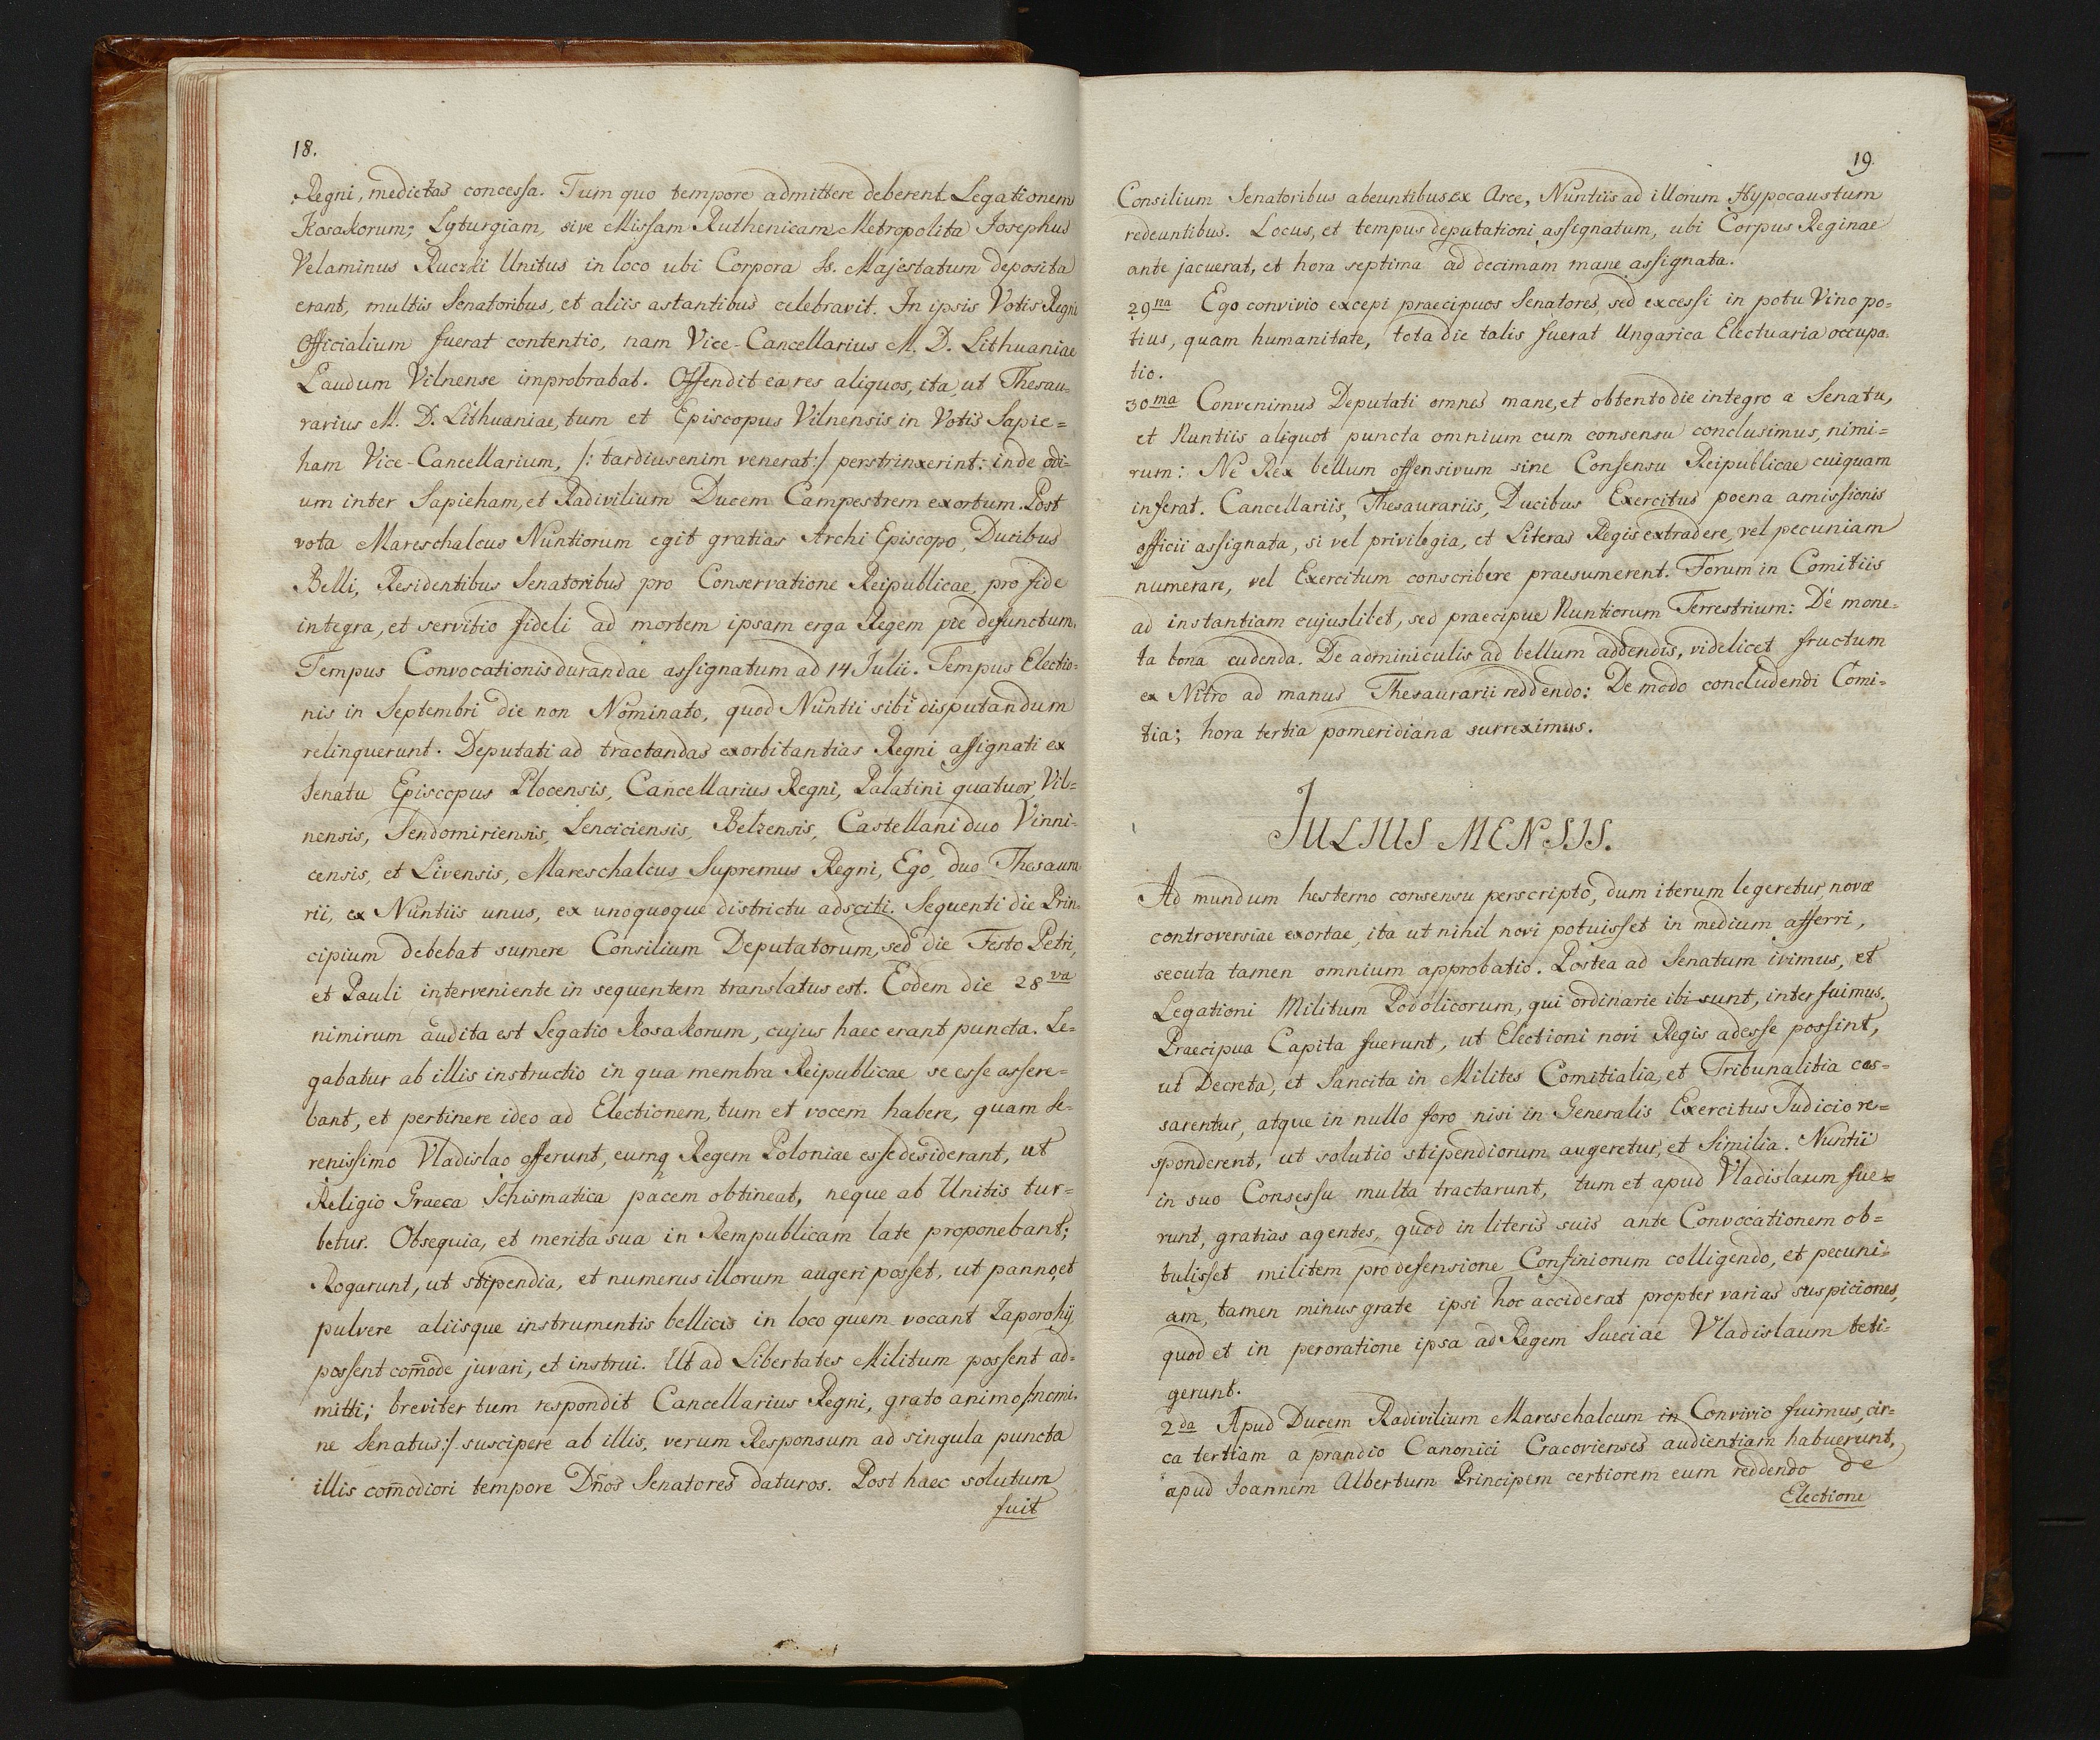 18.
Regni, medietas concessa. Tum quo tempore admittere deberent Legationem
Kosakorum; Lyturgiam, sive Missam Ruthenicam Metropolita Josephus
Velaminus Ruczki Unitus in loco ubi Corpora Ss. Majestatum deposita
erant, multis Senatoribus, et aliis astantibus celebravit. In ipsis Votis Regni
Officialium fuerat contentio, nam Vice-Cancellarius M. D. Lithuaniae
Laudum Vilnense improbrabat. Offendit ea res aliquos, ita, ut Thesau-
rarius M. D. Lithuaniae, tum et Episcopus Vilnensis in Votis Sapie=
ham Vice-Cancellarium, /: tardius enim venerat :/ perstrinxerint: inde odi-
um inter Sapieham, et Radivilium Ducem Campestrem exortum. Post
vota Mareschalcus Nuntiorum egit gratias Archi Episcopo, Ducibus
Belli, Residentibus Senatoribus pro Conservatione Reipublicae, pro fide
integra, et servitio fideli ad mortem ipsam erga Regem pie defunctum,
Tempus Convocationis durandae assignatum ad 14 Julii. Tempus Electio-
nis in Septembri die non Nominato, quod Nuntii sibi disputandum
relinquerunt. Deputati ad tractandas exorbitantias Regni assignati ex
Senatu Episcopus Plocensis, Cancellarius Regni, Palatini quatuor, Vil=
nensis, Sendomiriensis, Lenciciensis, Belzensis, Castellani duo Vinni-
censis, et Livensis, Mareschalcus Supremus Regni, Ego, duo Thesaura
rii, ex Nuntiis unus, ex unoquoque districtu adsciti. Sequenti die Prin-
cipium debebat sumere Consilium Deputatorum, sed die Festo Petri,
et Pauli interveniente in sequentem translatus est. Eodem die 28va
nimirum audita est Legatio Kosakorum, cujus haec erant puncta. Le=
gabatur ab illis instructio in qua membra Reipublicae se esse assere=
bant, et pertinere ideo ad Electionem, tum et vocem habere, quam Se-
renissimo Vladislao offerunt, eumq Regem Poloniae esse desiderant, ut
Religio Graeca Schismatica pacem obtineat, neque ab Unitis tur=
betur. Obsequia, et merita sua in Rempublicam late proponebant;
Rogarunt, ut stipendia, et numerus illorum augeri posset, ut panno, et
pulvere aliisque instrumentis bellicis in loco quem vocant Zaporohij
possent com̄ode juvari, et instrui. Ut ad Libertates Militum possent ad=
mitti; breviter tum respondit Cancellarius Regni, grato animo /:nomi-
ne Senatus:/ suscipere ab illis, verum Responsum ad singula puncta
illis com̄odiori tempore Dn̄os Senatores daturos. Post haec solutum
fuit
19.
Consilium Senatoribus abeuntibus ex Arce, Nuntiis ad illorum Hypocaustum
redeuntibus. Locus, et tempus deputationi assignatum, ubi Corpus Reginae
ante jacuerat, et hora septima ad decimam mane assignata.
29na Ego convivio excepi praecipuos Senatores, sed excessi in potu Vino po=
tius, quam humanitate, tota die talis fuerat Ungarica Electuaria occupa-
tio.
30ma Convenimus Deputati omnes mane, et obtento die integro a Senatu,
et Nuntiis aliquot puncta omnium cum consensu conclusimus, nimi=
rum: Ne Rex bellum offensivum sine Consensu Reipublicae cuiquam
inferat. Cancellariis, Thesaurariis, Ducibus Exercitus poena amissionis
officii assignata, si vel privilegia, et Literas Regis extradere, vel pecuniam
numerare, vel Exercitum conscribere praesumerent. Forum in Comitiis
ad instantiam cujuslibet, sed praecipue Nuntiorum Terrestrium: De mone-
ta bona cudenda. De adminiculis ad bellum addendis, videlicet fructum
ex Nitro ad manus Thesaurarii reddendo: De modo concludendi Comi-
tia; hora tertia pomeridiana surreximus.
JULIUS MENSIS.
Ad mundum hesterno consensu perscripto, dum iterum legeretur, novæ
controversiae exortae, ita ut nihil novi potuisset in medium afferri,
secuta tamen omnium approbatio. Postea ad Senatum ivimus, et
Legationi Militum Podolicorum, qui ordinarie ibi sunt, interfuimus.
Praecipua Capita fuerunt, ut Electioni novi Regis adesse possint,
ut Decreta, et Sancita in Milites Comitialia, et Tribunalitia ces-
sarentur, atque in nullo foro nisi in Generalis Exercitus Judicio re=
sponderent, ut solutio stipendiorum augeretur, et Similia. Nuntii
in suo Consessu multa tractarunt, tum et apud Vladislaum fue=
runt, gratias agentes, quod in literis suis ante Convocationem ob=
tulisset militem pro defensione Confiniorum colligendo, et pecuni-
am, tamen minus grate ipsi hoc acciderat propter varias suspiciones,
quod et in peroratione ipsa ad Regem Sueciae Vladislaum teti-
gerunt.
2da Apud Ducem Radivilium Mareschalcum in Convivio fuimus, cir-
ca tertiam a prandio Canonici Cracovienses audientiam habuerunt,
apud Joannem Albertum Principem certiorem eum reddendo de
Electione